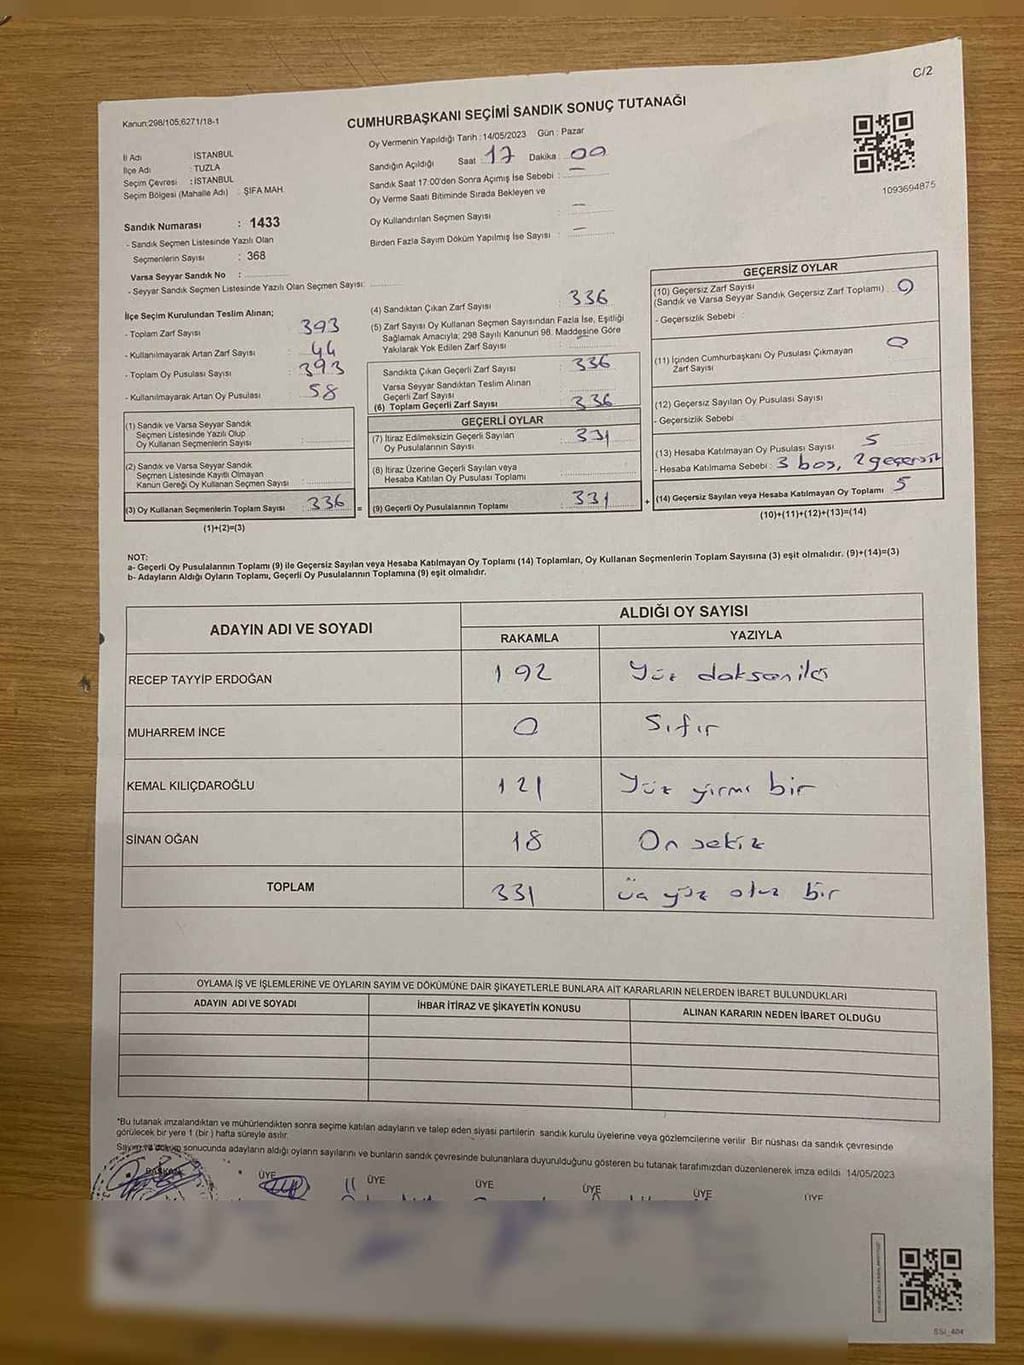 C/2
Kanun:298/105;6271/18-1
CUMHURBAŞKANI SEÇİMİ SANDIK SONUÇ TUTANAĞI
İl Adı : İSTANBUL
İlçe Adı : TUZLA
Seçim Çevresi : İSTANBUL
Seçim Bölgesi (Mahalle Adı) : ŞİFA MAH.
Oy Vermenin Yapıldığı Tarih : 14/05/2023 Gün : Pazar
Sandığın Açıldığı Saat : 17 Dakika : 00
Sandık Saat 17:00'den Sonra Açımış İse Sebebi : —
Oy Verme Saati Bitiminde Sırada Bekleyen ve
Oy Kullandırılan Seçmen Sayısı : —
Birden Fazla Sayım Döküm Yapılmış İse Sayısı : —
1093694875
Sandık Numarası : 1433
- Sandık Seçmen Listesinde Yazılı Olan
Seçmenlerin Sayısı : 368
Varsa Seyyar Sandık No :
- Seyyar Sandık Seçmen Listesinde Yazılı Olan Seçmen Sayısı:
İlçe Seçim Kurulundan Teslim Alınan;
- Toplam Zarf Sayısı : 393
- Kullanılmayarak Artan Zarf Sayısı : 44
- Toplam Oy Pusulası Sayısı : 393
- Kullanılmayarak Artan Oy Pusulası : 58
(1) Sandık ve Varsa Seyyar Sandık
Seçmen Listesinde Yazılı Olup
Oy Kullanan Seçmenlerin Sayısı :
(2) Sandık ve Varsa Seyyar Sandık
Seçmen Listesinde Kayıtlı Olmayan
Kanun Gereği Oy Kullanan Seçmen Sayısı :
(3) Oy Kullanan Seçmenlerin Toplam Sayısı : 336 =
(1)+(2)=(3)
(4) Sandıktan Çıkan Zarf Sayısı : 336
(5) Zarf Sayısı Oy Kullanan Seçmen Sayısından Fazla İse, Eşitliği
Sağlamak Amacıyla; 298 Sayılı Kanunun 98. Maddesine Göre
Yakılarak Yok Edilen Zarf Sayısı : —
Sandıkta Çıkan Geçerli Zarf Sayısı : 336
Varsa Seyyar Sandıktan Teslim Alınan
Geçerli Zarf Sayısı :
(6) Toplam Geçerli Zarf Sayısı : 336
GEÇERLİ OYLAR
(7) İtiraz Edilmeksizin Geçerli Sayılan
Oy Pusulalarının Sayısı : 331
(8) İtiraz Üzerine Geçerli Sayılan veya
Hesaba Katılan Oy Pusulası Toplamı :
(9) Geçerli Oy Pusulalarının Toplamı : 331 +
GEÇERSİZ OYLAR
(10) Geçersiz Zarf Sayısı
(Sandık ve Varsa Seyyar Sandık Geçersiz Zarf Toplamı) : 0
- Geçersizlik Sebebi :
(11) İçinden Cumhurbaşkanı Oy Pusulası Çıkmayan
Zarf Sayısı : 0
(12) Geçersiz Sayılan Oy Pusulası Sayısı
- Geçersizlik Sebebi :
(13) Hesaba Katılmayan Oy Pusulası Sayısı : 5
- Hesaba Katılmama Sebebi : 3 boş, 2 geçersiz
(14) Geçersiz Sayılan veya Hesaba Katılmayan Oy Toplamı : 5
(10)+(11)+(12)+(13)=(14)
NOT:
a- Geçerli Oy Pusulalarının Toplamı (9) ile Geçersiz Sayılan veya Hesaba Katılmayan Oy Toplamı (14) Toplamları, Oy Kullanan Seçmenlerin Toplam Sayısına (3) eşit olmalıdır. (9)+(14)=(3)
b- Adayların Aldığı Oyların Toplamı, Geçerli Oy Pusulalarının Toplamına (9) eşit olmalıdır.
ADAYIN ADI VE SOYADI
ALDIĞI OY SAYISI
RAKAMLA YAZIYLA
RECEP TAYYİP ERDOĞAN 192 Yüz doksan iki
MUHARREM İNCE 0 Sıfır
KEMAL KILIÇDAROĞLU 121 Yüz yirmi bir
SİNAN OĞAN 18 On sekiz
TOPLAM 331 üç yüz otuz bir
OYLAMA İŞ VE İŞLEMLERİNE VE OYLARIN SAYIM VE DÖKÜMÜNE DAİR ŞİKAYETLERLE BUNLARA AİT KARARLARIN NELERDEN İBARET BULUNDUKLARI
ADAYIN ADI VE SOYADI İHBAR İTİRAZ VE ŞİKAYETİN KONUSU ALINAN KARARIN NEDEN İBARET OLDUĞU
*Bu tutanak imzalandıktan ve mühürlendikten sonra seçime katılan adayların ve talep eden siyasi partilerin sandık kurulu üyelerine veya gözlemcilerine verilir. Bir nüshası da sandık çevresinde
görülecek bir yere 1 (bir) hafta süreyle asılır.
Sayım ve döküm sonucunda adayların aldığı oyların sayılarını ve bunların sandık çevresinde bulunanlara duyurulduğunu gösteren bu tutanak tarafımızdan düzenlenerek imza edildi. 14/05/2023
BAŞKAN ÜYE ÜYE ÜYE ÜYE ÜYE ÜYE
SSİ_404